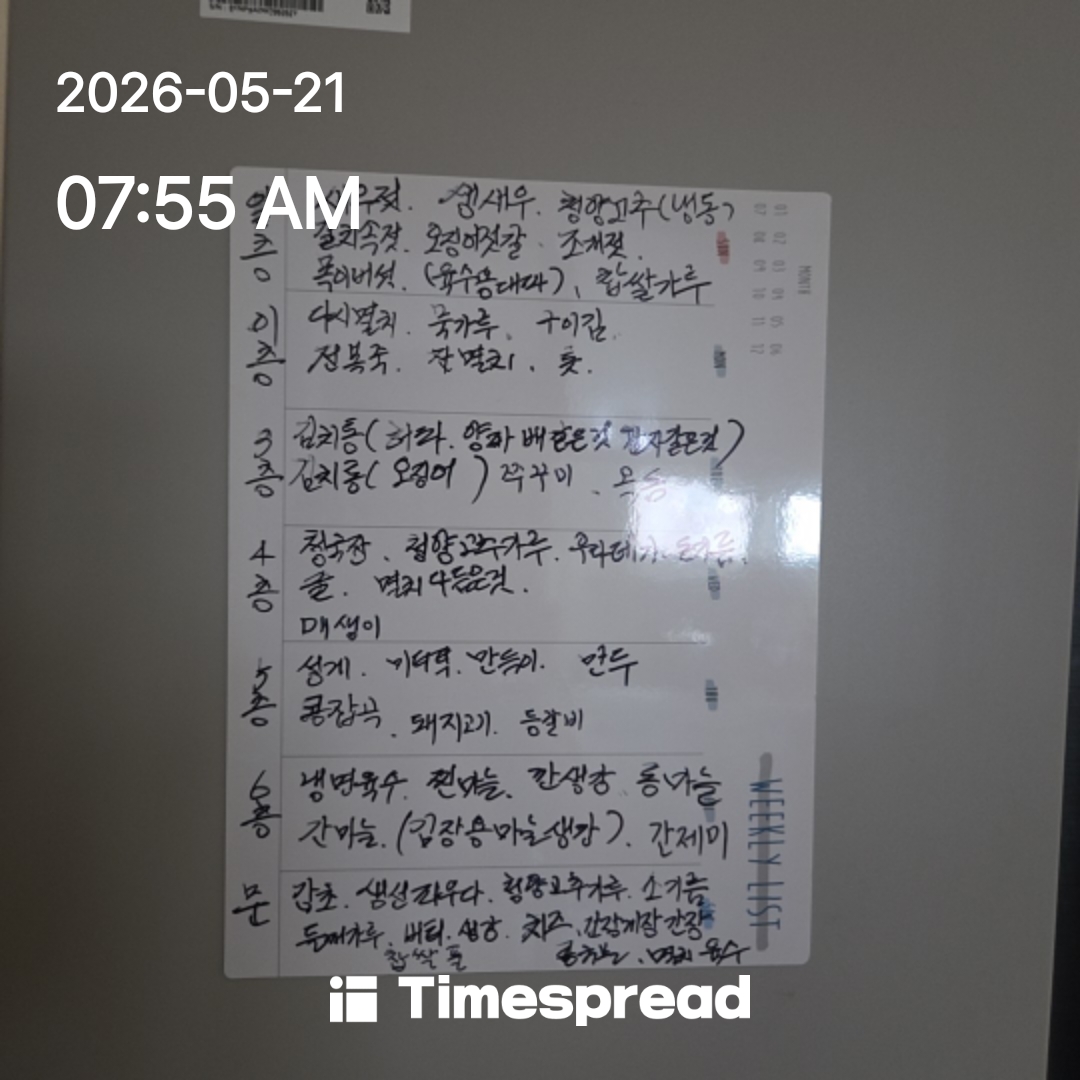 2026-05-21
07:55 AM
일층
새우젓. 생새우. 청양고추(냉동)
갈치속젓. 오징어젓갈. 조개젓.
목이버섯. (육수용대파), 찹쌀가루
이층
다시멸치. 국가루. 구이김.
전복죽. 잔멸치. 톳.
3층
김치통( 양파 배
김치통( 오징어 ) 쭈꾸미.
4층
청국장. 청양고추가루.
굴. 멸치다듬은것.
매생이
5층
성게. 미더덕. 만두
콩잡곡. 돼지고기. 등갈비
6층
냉면육수. 찐마늘. 깐생강. 통마늘
간마늘. (김장용마늘생강). 간제미
문
감초. 생선 청양고추가루.
들깨가루. 버터. 생강. 치즈. 간장게장간장
찹쌀풀 멸치육수
MONTH
01 02 03 04 05 06
07 08 09 10 11 12
WEEKLY LIST
Timespread